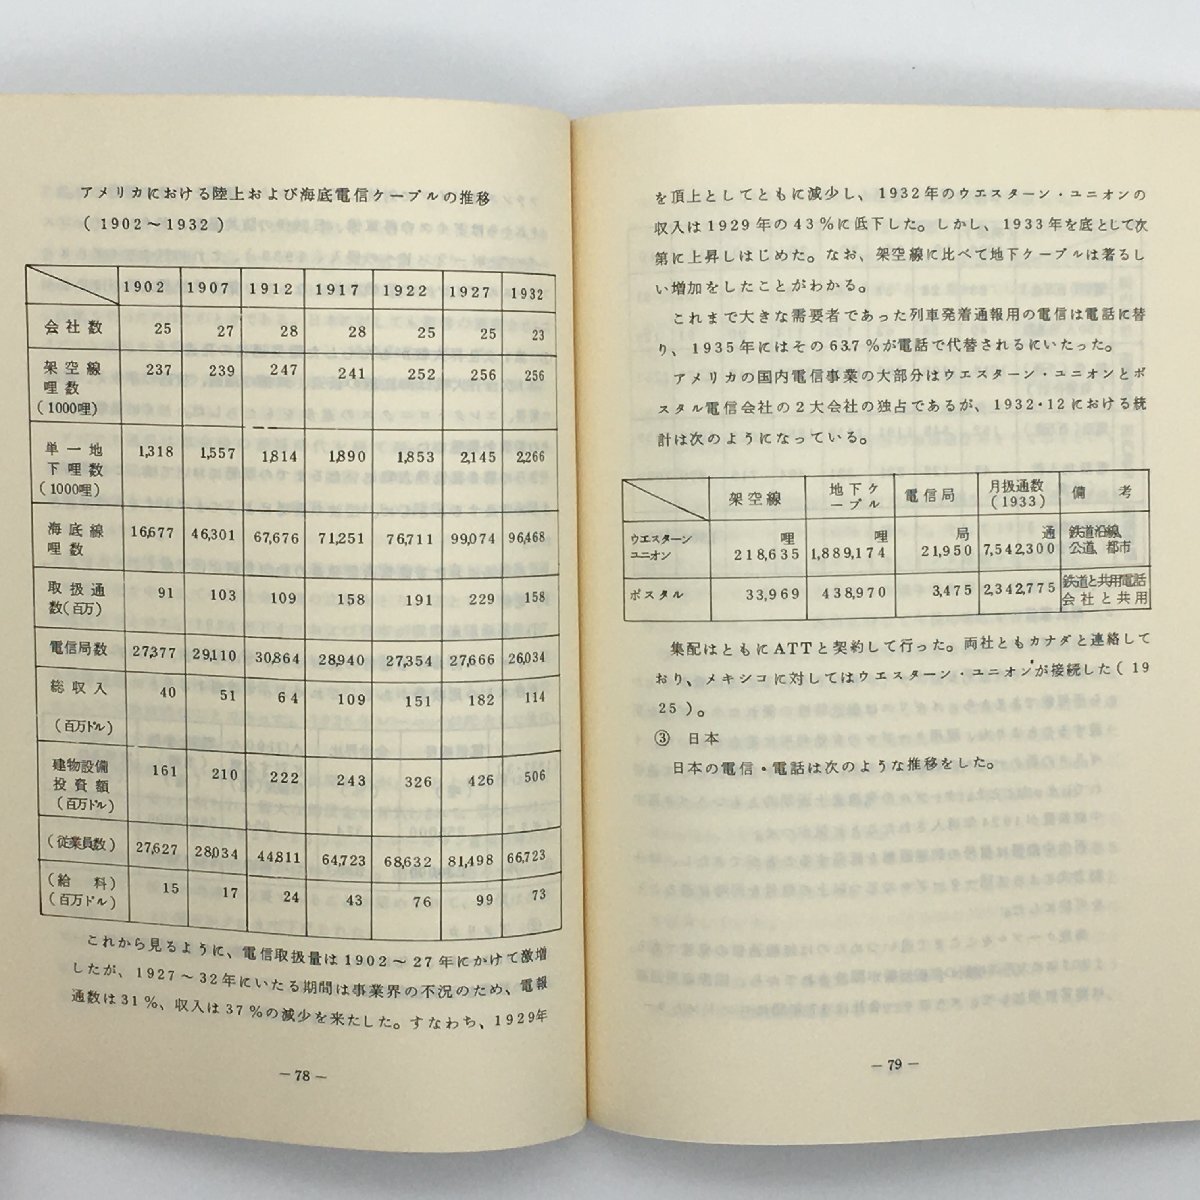 アメリカにおける陸上および海底電信ケーブルの推移
(1902～1932)
1902 1907 1912 1917 1922 1927 1932
会社数 25 27 28 28 25 25 23
架空線 237 239 247 241 252 256 256
哩数
(1000哩)
単一地 1,318 1,557 1,814 1,890 1,853 2,145 2,266
下哩数
(1000哩)
海底線 16,677 46,301 67,676 71,251 76,711 99,074 96,468
哩数
取扱通 91 103 109 158 191 229 158
数(百万)
電信局数 27,377 29,110 30,864 28,940 27,354 27,666 26,034
総収入 40 51 64 109 151 182 114
(百万ドル)
建物設備 161 210 222 243 326 426 506
投資額
(百万ドル)
(従業員数) 27,627 28,034 44,811 64,723 68,632 81,498 66,723
(給料) 15 17 24 43 76 99 73
(百万ドル)
これから見るように、電信取扱量は1902～27年にかけて激増
したが、1927～32年にいたる期間は事業界の不況のため、電報
通数は31%、収入は37%の減少を来たした。すなわち、1929年
－78－
を頂上としてともに減少し、1932年のウエスターン・ユニオンの
収入は1929年の43%に低下した。しかし、1933年を底として次
第に上昇しはじめた。なお、架空線に比べて地下ケーブルは著るし
い増加をしたことがわかる。
これまで大きな需要者であった列車発着通報用の電信は電話に替
り、1935年にはその63.7%が電話で代替されるにいたった。
アメリカの国内電信事業の大部分はウエスターン・ユニオンとポ
スタル電信会社の2大会社の独占であるが、1932・12における統
計は次のようになっている。
架空線 地下ケ 電信局 月扱通数 備考
ーブル (1933)
ウエスターン 哩 哩 局 通 鉄道沿線、
ユニオン 218,635 1,889,174 21,950 7,542,300 公道、都市
ポスタル 33,969 438,970 3,475 2,342,775 鉄道と共用電話
会社と共用
集配はともにATTと契約して行った。両社ともカナダと連絡して
おり、メキシコに対してはウエスターン・ユニオンが接続した(19
25)。
③ 日本
日本の電信・電話は次のような推移をした。
－79－